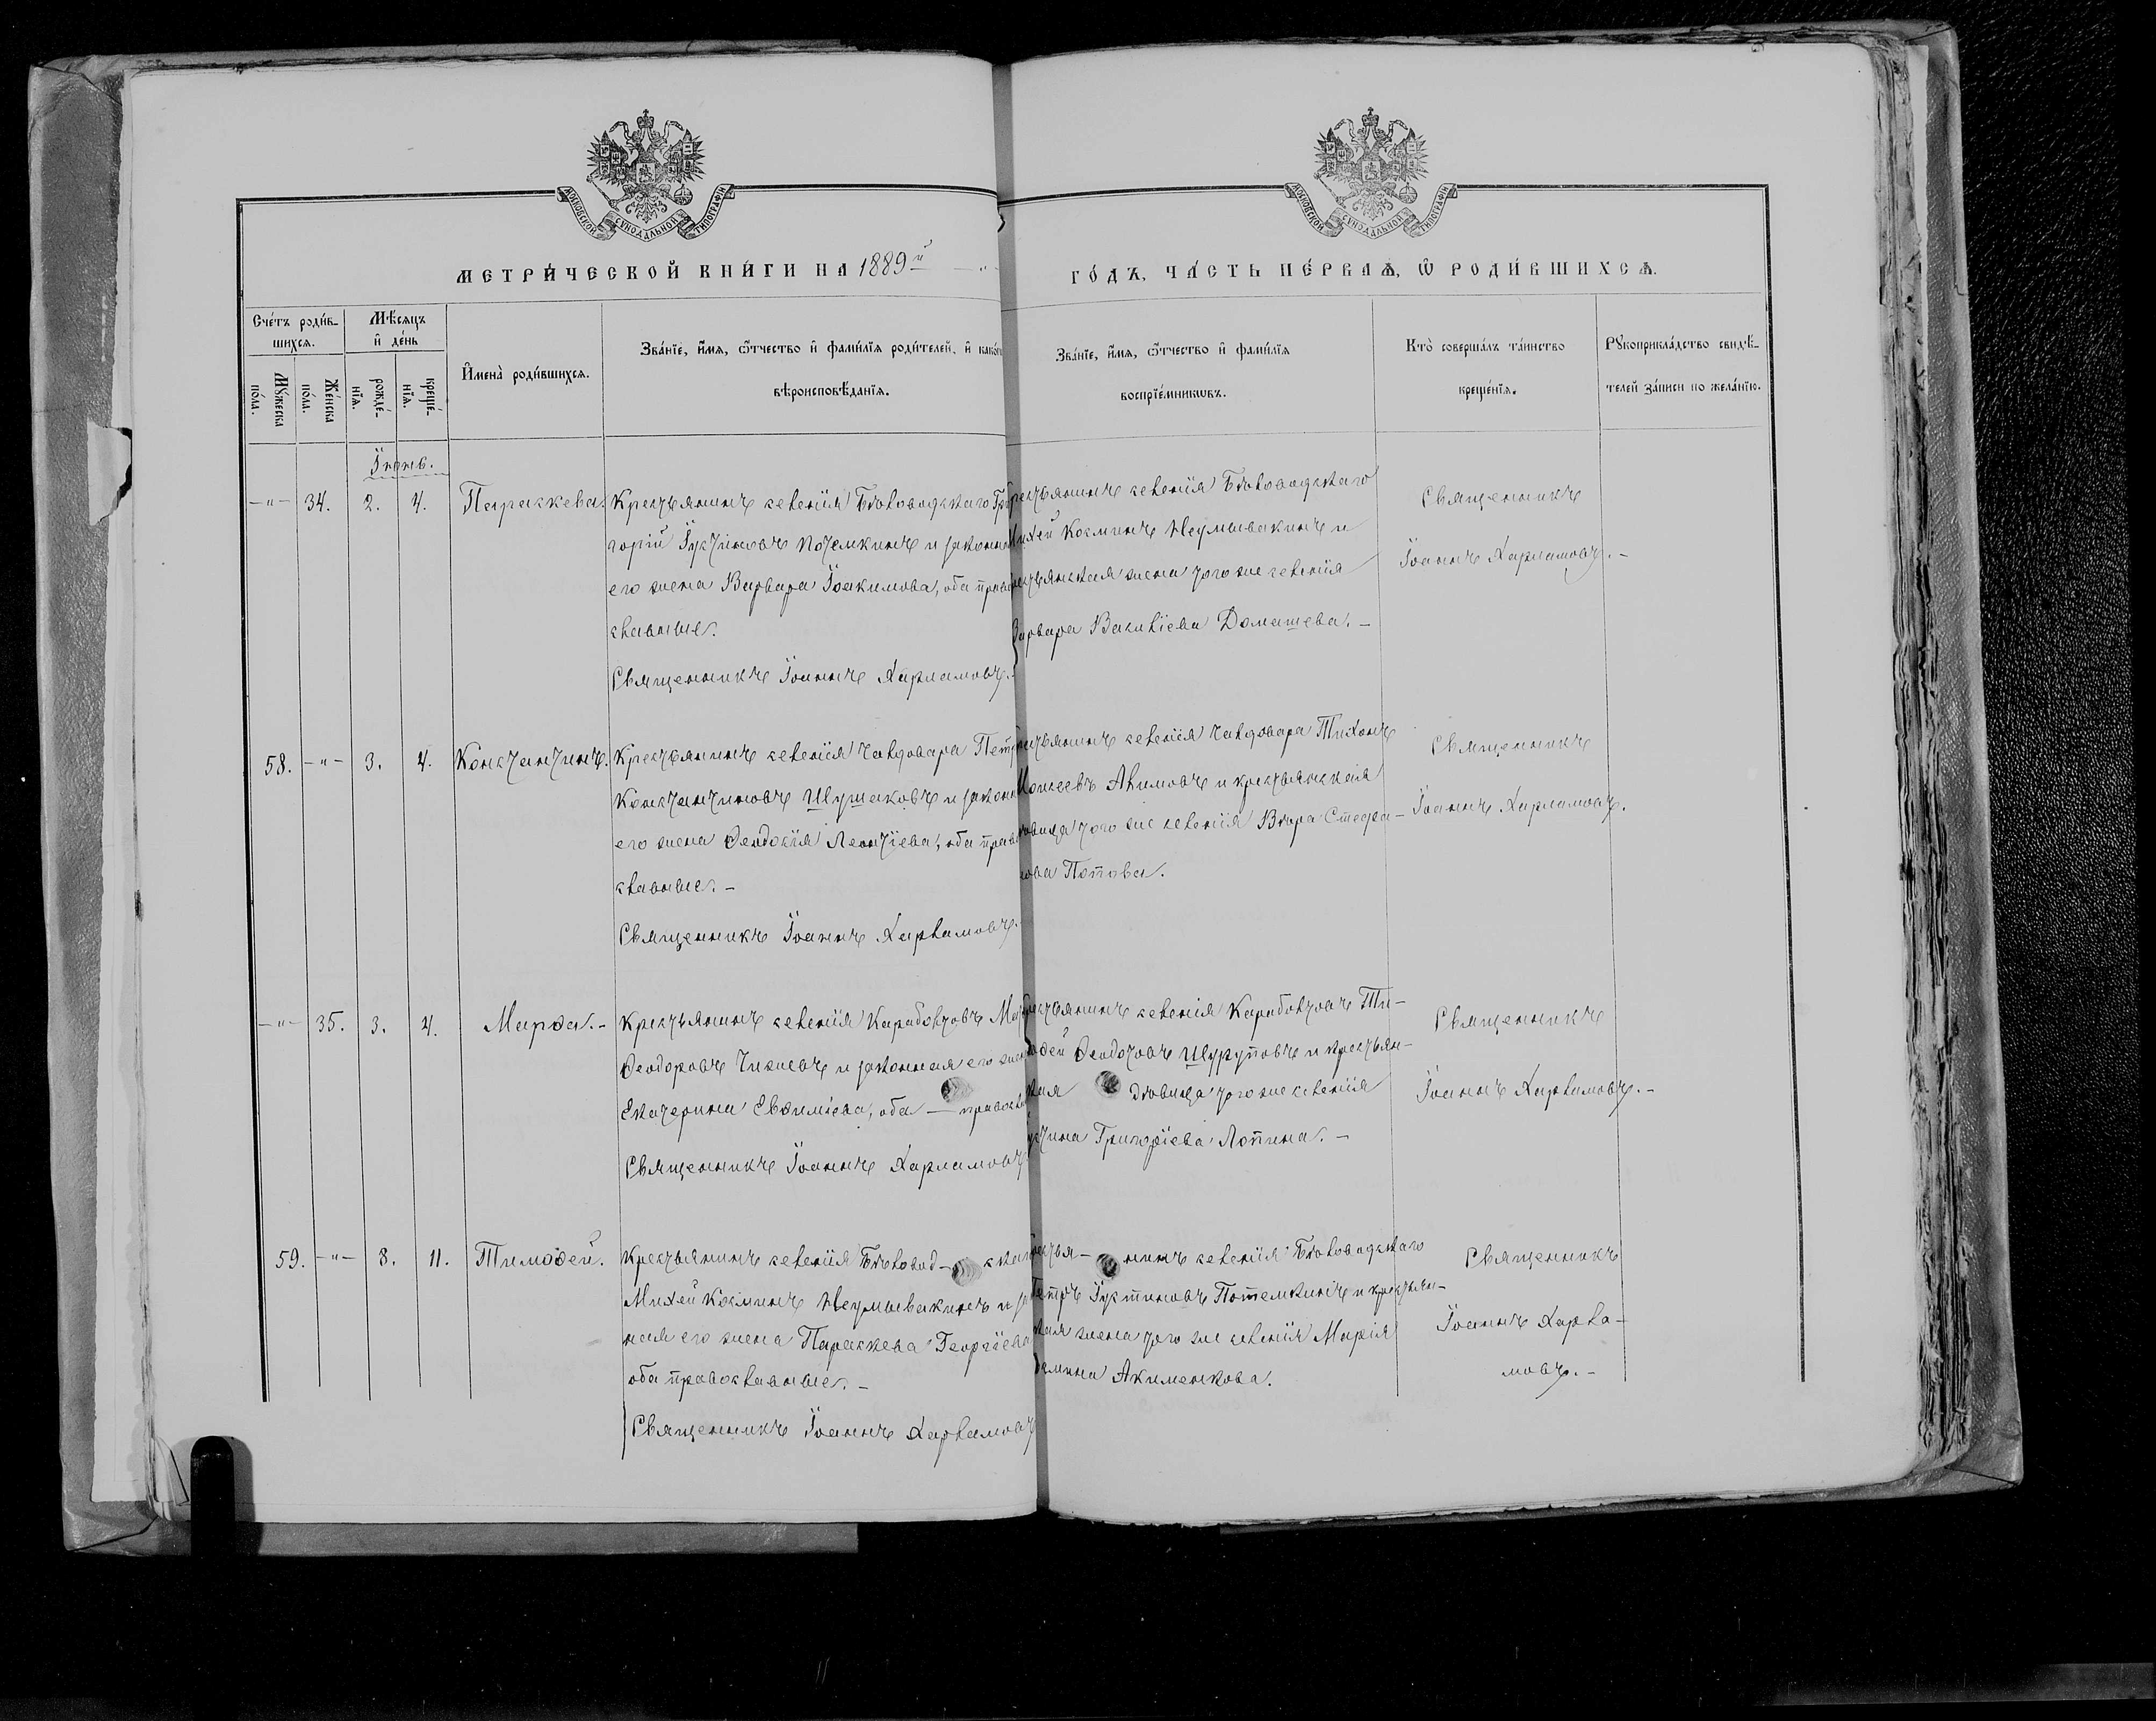 МОСКОВСКОЙ СѴНОДАЛЬНОЙ ТИПОГРАФІИ
МОСКОВСКОЙ СѴНОДАЛЬНОЙ ТИПОГРАФІИ
МЕТРИ́ЧЕСКОЙ КНИ́ГИ НА 1889й — „ — ГО́ДЪ, ЧА́СТЬ ПЕ́РВАѦ, Ѡ РОДИ́ВШИХСѦ.
Сче́тъ роди́в-
шихсѧ.
Мꙋ́жеска
по́ла.
Же́нска
по́ла.
Мѣ́сѧцъ
и҆ де́нь
рожде́-
нїѧ.
креще́-
нїѧ.
И҆мена̀ роди́вшихсѧ.
Зва́нїе, и҆́мѧ, ѻ҆́тчество и҆ фами́лїѧ роди́телей, и҆ како́гѡ
вѣроисповѣ́данїѧ.
Зва́нїе, и҆́мѧ, ѻ҆́тчество и҆ фами́лїѧ
воспрїе́мникѡвъ.
Кто̀ соверша́лъ та́инство
креще́нїѧ.
Рꙋкоприкла́дство свидѣ́-
телей за́писи по жела́нїю.
Іюнь.
—„— 34. 2. 4. Параскева.
Крестьянинъ селенія Бѣловодскаго Гри
горій Іустиновъ Потемкинъ и законн
его жена Варвара Іоакимова, оба право
славные.
Священникъ Іоаннъ Харламовъ.
рестьянинъ селенія Бѣловодскаго
Михей Косминъ Неумывакинъ и
рестьянская жена того же селенія
Варвара Василіева Домашева. —
Священникъ
Іоаннъ Харламовъ. —
58. —„— 3. 4. Константинъ.
Крестьянинъ селенія Чалдовара Петр
Константиновъ Шушаковъ и законн
его жена Ѳеодосія Леонтіева, оба право
славные. —
Священникъ Іоаннъ Харламовъ.
рестьянинъ селенія Чалдовара Тихонъ
Моисеевъ Акимовъ и крестьянская
вица того же селенія Вѣра Стефа—
нова Попова.
Священникъ
Іоаннъ Харламовъ.
—„— 35. 3. 4. Марѳа. —
Крестьянинъ селенія Карабалтовъ
Ѳеодоровъ Чижевъ и законная его жена
Екатерина Евѳиміева, оба — правосла
Священникъ Іоаннъ Харламовъ
Крестьянинъ селенія Карабалтовъ Ти—
моѳей Ѳеодотовъ Шуруповъ и крестьян—
ская дѣвица того же селенія
стина Григоріева Лопина. —
Священникъ
Іоаннъ Харламовъ. —
59. —„— 8. 11. Тимоѳей.
Крестьянинъ селенія Бѣловод— скаго
Михей Косминъ Неумывакинъ и за
ная его жена Параскева Георгіева
оба православные. —
Священникъ Іоаннъ Харламовъ
Крестья— нинъ селенія Бѣловодскаго
Петръ Іустиновъ Потемкинъ и крестьян—
ская жена того же селенія Марія
Акименкова.
Священникъ
Іоаннъ Харла—
мовъ. —